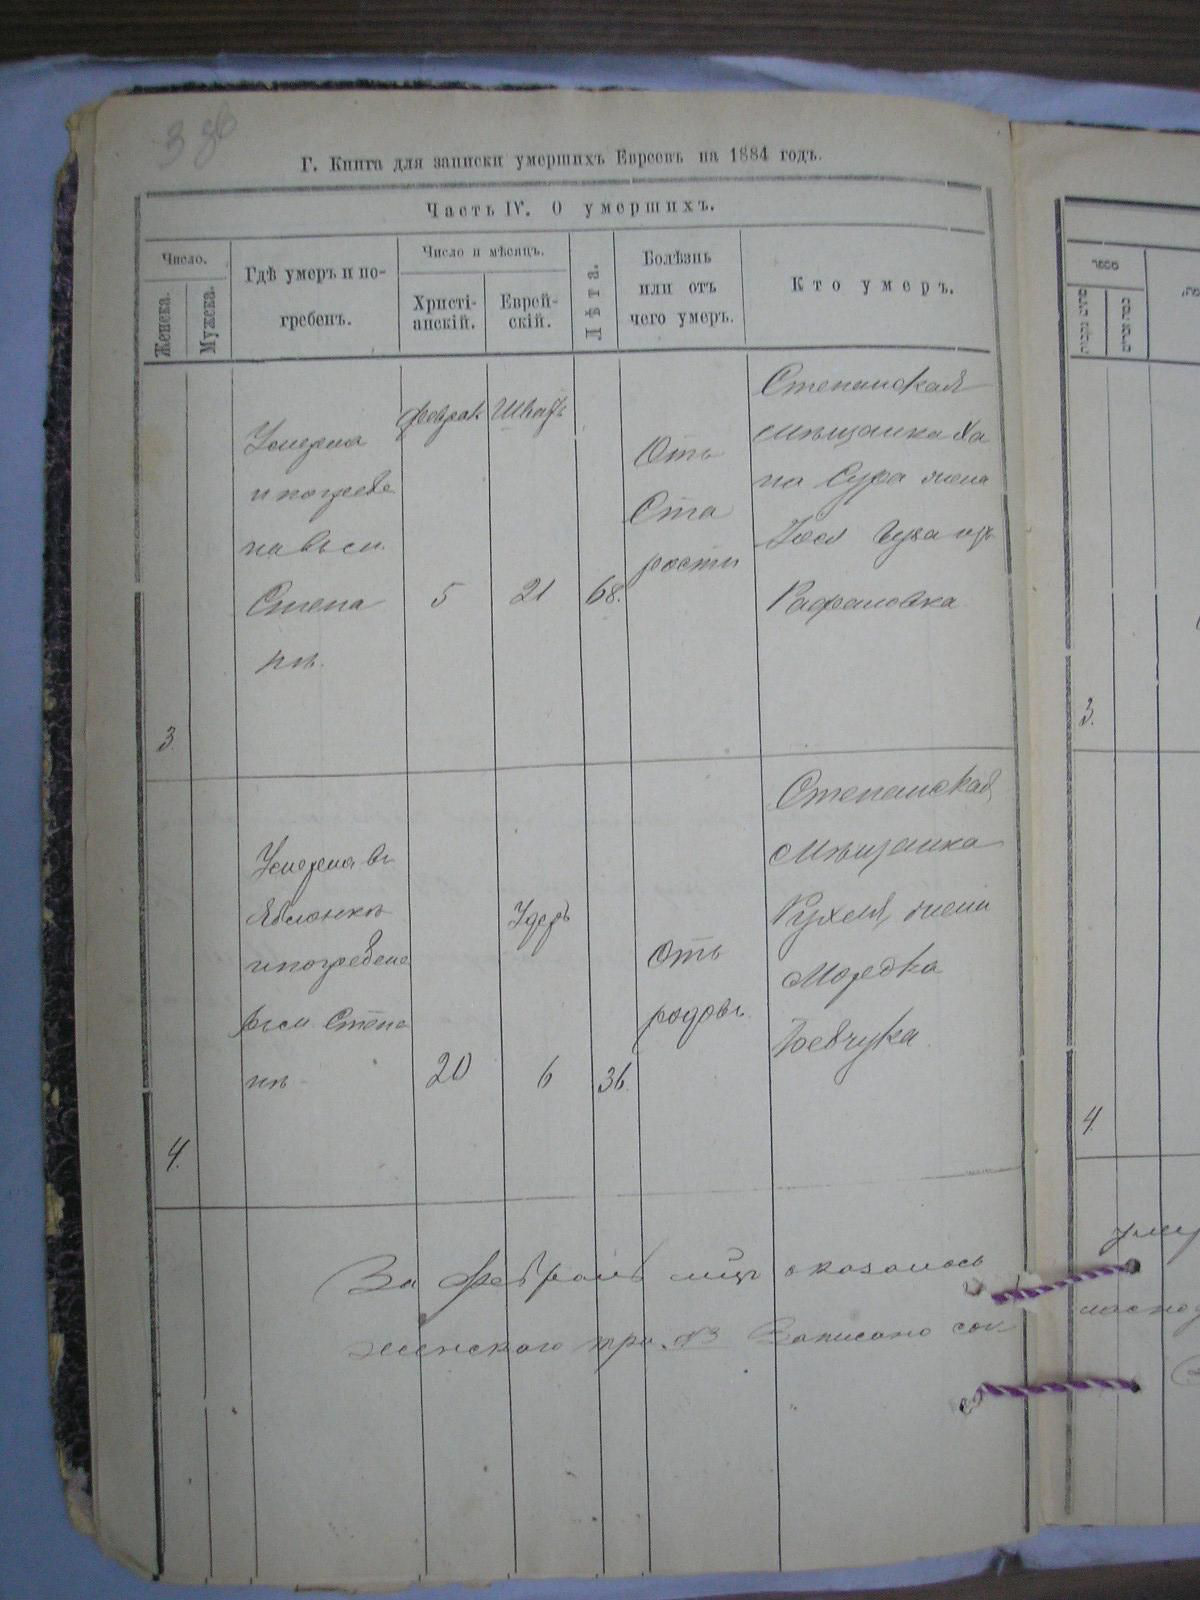 Г. Книга для записки умершихъ Евреевъ на 1884 годъ.
Часть IV. О умершихъ.
Число.
Женска.
Мужска.
Гдѣ умеръ и по-
гребенъ.
Число и мѣсяцъ.
Христі-
анскій.
Еврей-
скій.
Лѣта.
Болѣзнь
или отъ
чего умеръ.
Кто умеръ.
3.
Умерла
и погребе
на въ м.
Степа
нѣ.
Феврал
5
Шватъ
21
68.
Отъ
Ста
рости
Степанская
мѣщанка Ха
на Сура жена
Рафаловка
4.
Умерла въ
Яблонкѣ
и погребена
въ м. Степа
нѣ
20
Удеръ
6
36.
Отъ
родовъ.
Степанская
мѣщанка
Рухля, жена
Мордка
За Февраль мцъ оказалось
женскаго три №3 Записано
3.
4.